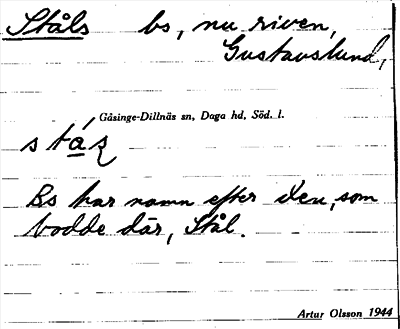 Ståls bs, nu riven,
Gustavslund,
Gåsinge-Dillnäs sn, Daga hd, Söd. l.
Bs har namn efter den, som
bodde där, Stål.
Artur Olsson 1944